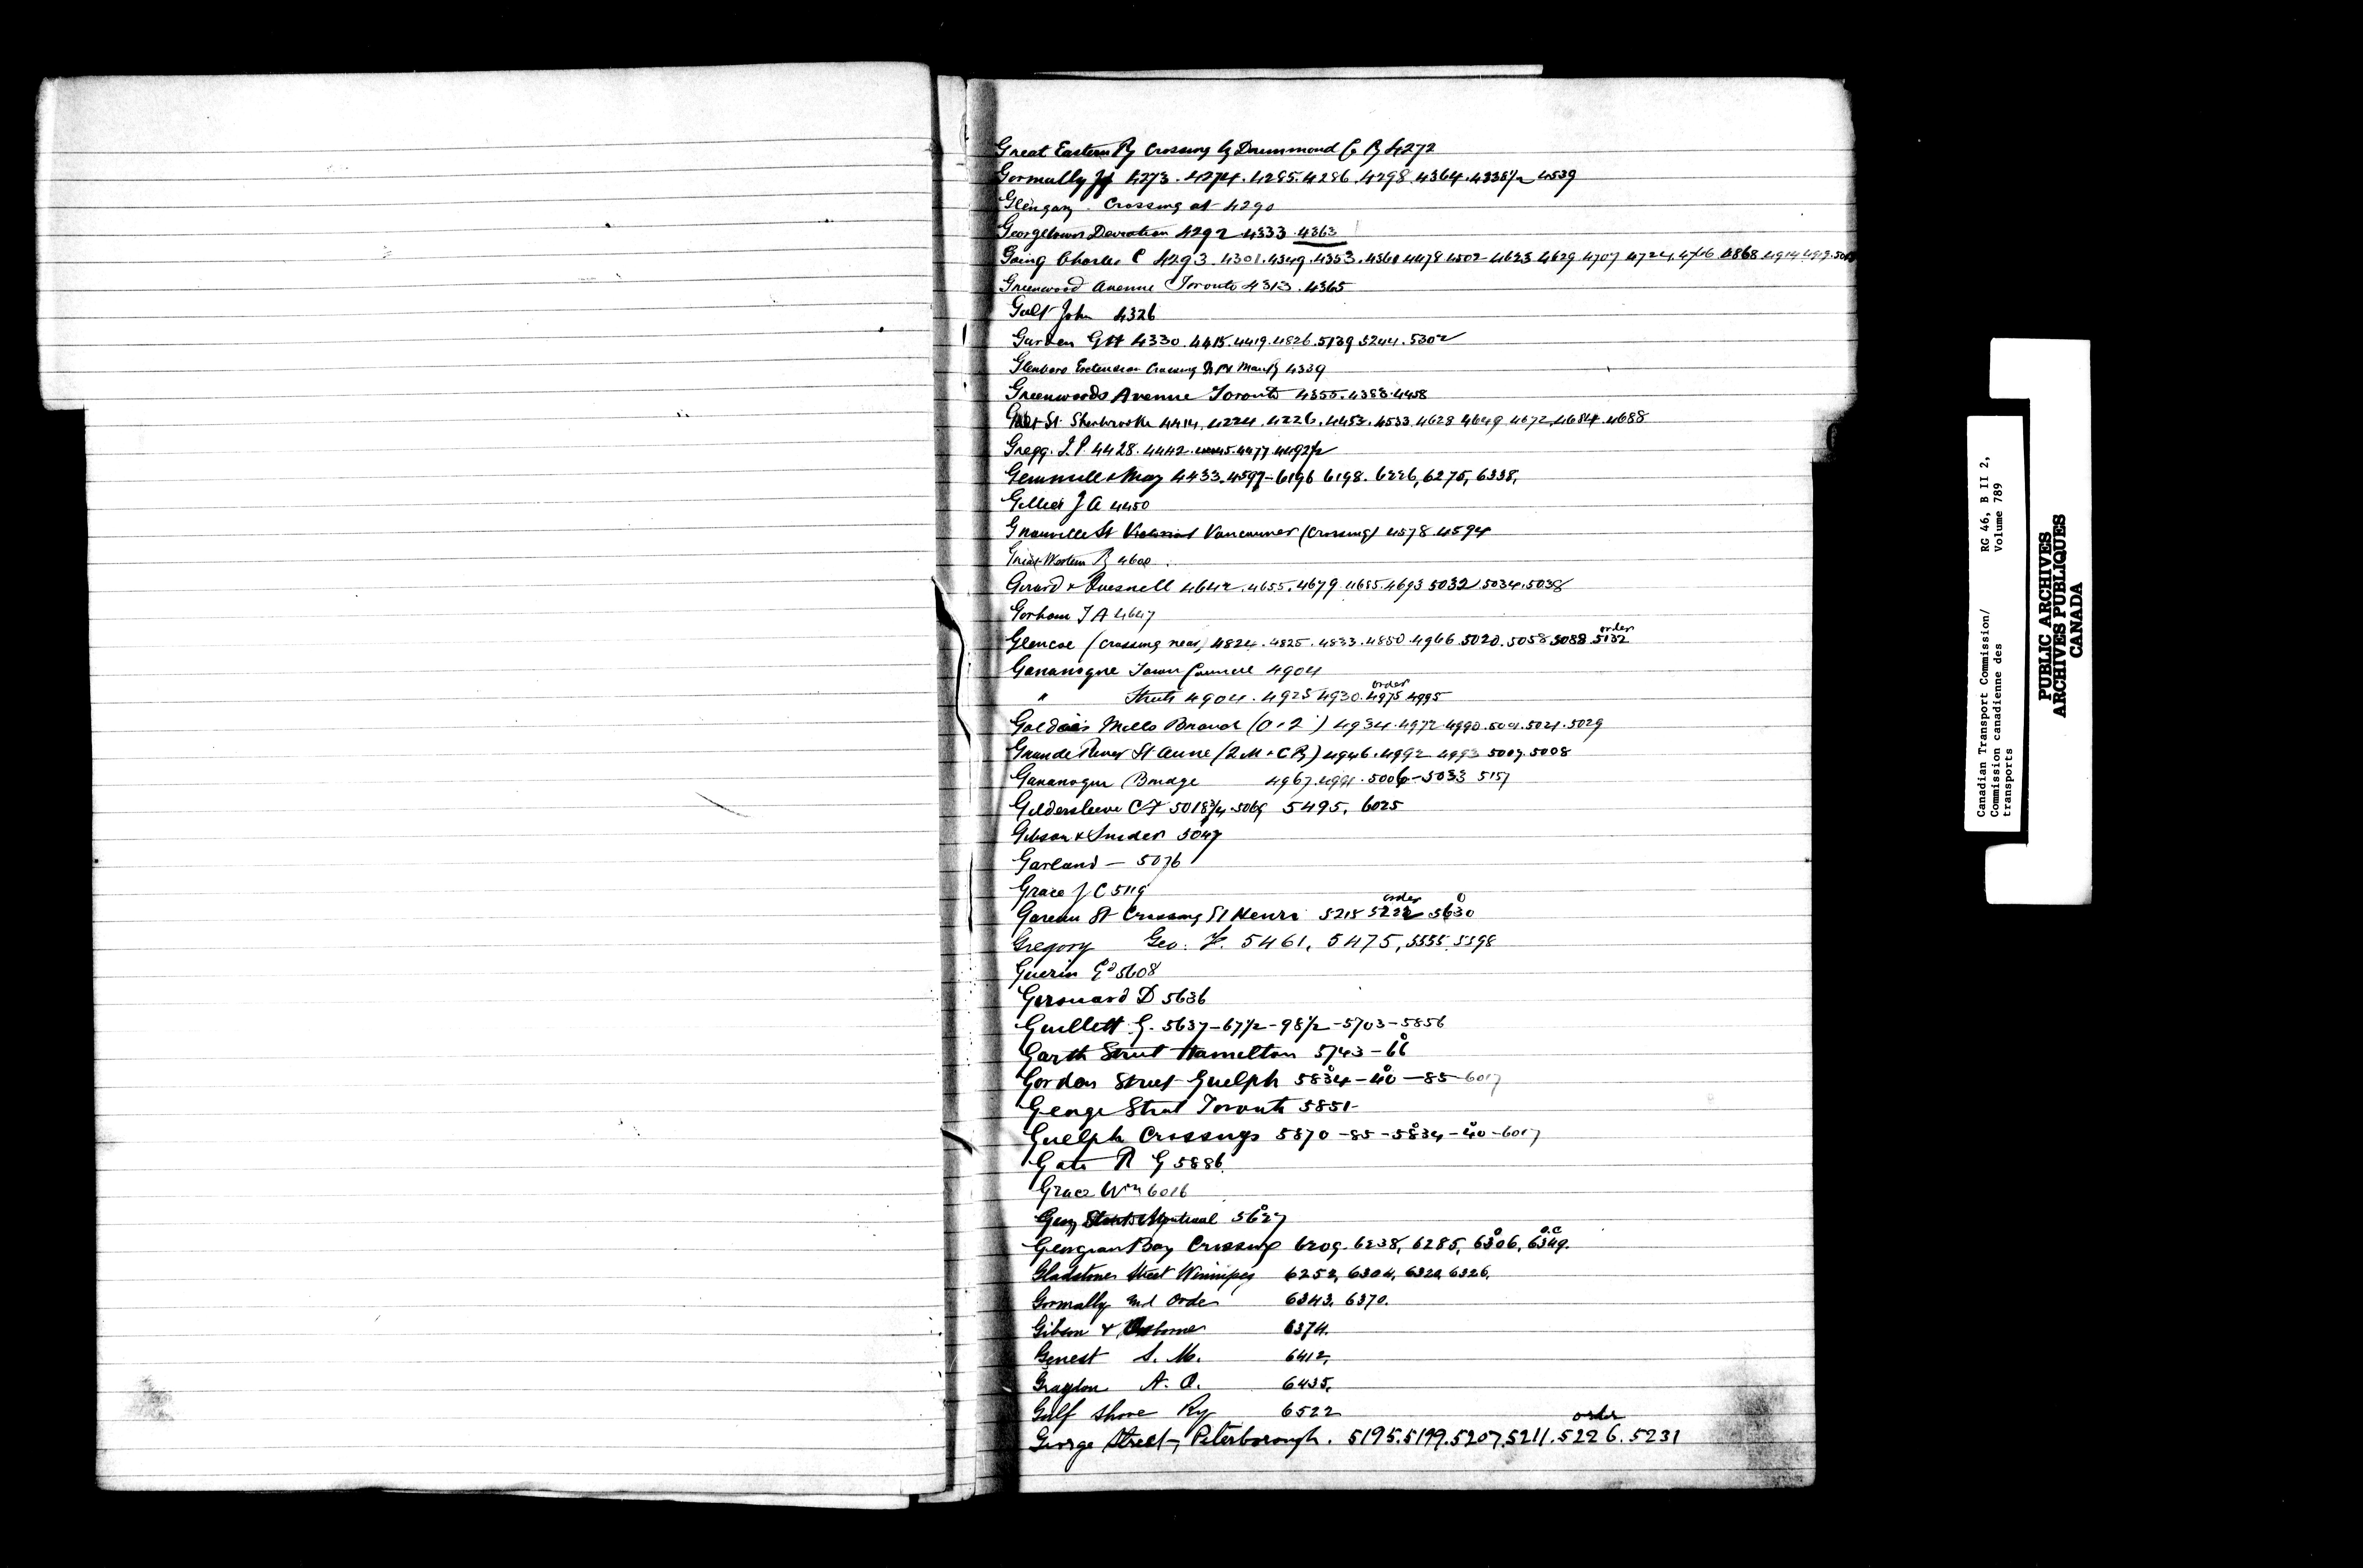 Great Eastern Ry Crossing by Drummond Co Ry 4272
Gormully 4273. 4274. 4285. 4286. 4298. 4364. 4338½ 4539
Glengary. Crossing at 4290
Georgetown Deviation 4292 4333. 4363
Going Charles C 4293 4301. 4349. 4353. 4361 4478 4502 4623 4629 4707 4724. 4868
Greenwood Avenue Toronto 4313. 4365
Galt John 4326
Garden GH 4330. 4415. 4419. 4826. 5139 5244. 5302
Glenboro Extension Crossing 4339
Greenwoods Avenue Toronto 4355. 4388. 4458
St. Sherbrooke 4414. 4224. 4226. 4453. 4533. 4628 4649 4672. 4684. 4688
Gregg. J. P. 4428. 4442. 4477 4492½
Gemmill & May 4433. 4597-6196 6198. 6226, 6275, 6338,
Gillies J A 4450
Granville St Vancouver (Crossing) 4578. 4594
Great Western Ry
Girard & Quesnell 4642. 4655. 4679. 4685. 4693 5032 5034. 5038
Gorham T A 4647
Glencoe (Crossing near) 4824. 4825. 4833. 4850. 4966. 5020. 5058 5088. 5132 order
Gananoque Town Council 4904
" Streets 4904. 4925 4930. 4975 order 4995
Goldie's Mills Branch 4934. 4972. 4990. 5021. 5029
Grande River St Anne 4946. 4992 4993 5007. 5008
Gananoque Bridge 4967. 4991. 5006-5033 5157
Gildersleeve C F 5018¾. 5069 5495, 6025
Gibson & Snider 5047
Garland — 5076
Grace J C 5119
Gareau St Crossing St Henri 5215 5222 order 5630
Gregory Geo. F. 5461, 5475, 5555. 5598
Guerin 5608
Girouard D 5636
Guillett G. 5637-67½-98½-5703-5856
Garth Street Hamilton 5743-66
Gordon Street Guelph 5834-40-85-6017
George Street Toronto 5851-
Guelph Crossings 5870-85-5834-40-6017
Gate R G 5886.
Grace Wm 6016
Guy Montreal 5627
Georgian Bay Crossing 6209. 6238, 6285, 6306, 6349.
Gladstone Street Winnipeg 6252, 6304, 6320, 6326.
Gormally and Orde 6343. 6370.
Gibson & Osborne 6374.
Genest S. M. 6412,
Graydon A. O. 6435,
Gulf Shore Ry 6522
George Street, Peterborough. 5195. 5199. 5207. 5211. 5226 order. 5231
Canadian Transport Commission/
Commission canadienne des
transports
RG 46, B II 2,
Volume 789
PUBLIC ARCHIVES
ARCHIVES PUBLIQUES
CANADA